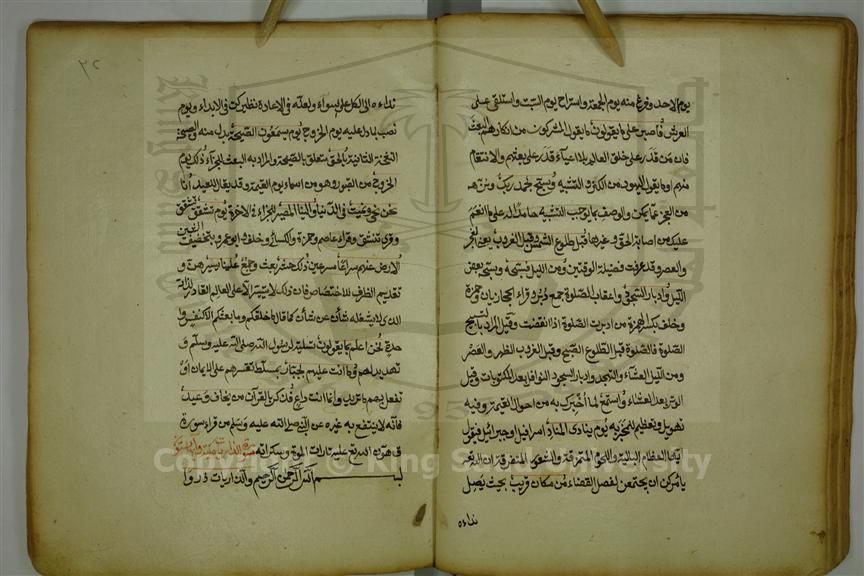 يوم الاحد وفرغ منه يوم الجمعة واستراح يوم السبت واستلقى على
العرش فاصبر على ما يقولون ما يقول المشركون من انكارهم البعث
فان من قدر على خلق العالم بلا اعياء قدر على بعثهم والانتقام
منهم او ما يقول اليهود من الكفر والتشبيه وسبح بحمد ربك ونزهه
من العجز عما يمكن والوصف بما يوجب التشبيه حامدا له على ما انعم
عليك من اصابة الحق وغيرها قبل طلوع الشمس وقبل الغروب يعنى الفجر
والعصر وقد عرفت فضيلة الوقتين ومن الليل فسبحه وسبحه بعض
الليل وادبار السجود واعقاب الصلوة جمع دبر وقراء الحجازيان وحمزة
وخلف بكسر الهمزة من ادبرت الصلوة اذا انقضت وقيل المراد بالتسبيح
الصلوة فالصلوة قبل الطلوع الصبح وقبل الغروب الظهر والعصر
ومن الليل العشاء والتهجد وادبار السجود النوافل بعد المكتوبات وقيل
الوتر بعد العشاء واستمع لما أخبرك به من احوال القيمة وفيه
تهويل وتعظيم للمخبر به يوم يناد المناد اسرافيل او جبرائيل فيقول
ايتها العظام البالية واللحوم المتمزقة والشعور المتفرقة ان الله
يأمركن ان تجتمعن لفصل القضاء من مكان قريب بحيث يصل
نداءه
٣٢
نداءه الى الكل على سواء ولعله فى الاعادة نظير كن فى الابداء ويوم
نصب بما دل عليه يوم الخروج يوم يسمعون الصيحة بدل منه والصيحة
النفخة الثانية بالحق متعلق بالصيحة والمراد به البعث للجزاء ذلك يوم
الخروج من القبور وهو من اسماء يوم القيمة وقد يقال للعيد انا
نحن نحيى ونميت فى الدنيا والينا المصير للجزاء فى الاخرة يوم تشقق تتشقق
وقرئ تنشق وقراء عاصم وحمزة والكسائى وخلف وابو عمرو بتخفيف الشين
الارض عنهم سراعا مسرعين ذلك حشر بعث وجمع علينا يسير هين و
تقديم الظرف للاختصاص فان ذلك لا يتيسر الا على العالم القادر لذاته
الذى لا يشغله شأن عن شأن كما قال ما خلقكم وما بعثكم الا كنفس وا
حدة نحن اعلم بما يقولون تسلية لرسول الله صلى الله عليه وسلم و
تهديد لهم وما انت عليهم بجبار بمسلط تقسرهم على الايمان او
تفعل بهم ما تريد وانما انت داع فذكر بالقرآن من يخاف وعيد
فانه لا ينتفع به غيره عن النبى صلى الله عليه وسلم من قراء سورة
ق هون الله تع عليه تارات الموت وسكراته سورة الذاريات مكية
بسم الله الرحمن الرحيم والذاريات ذروا
Copyright © King Saud University
1957